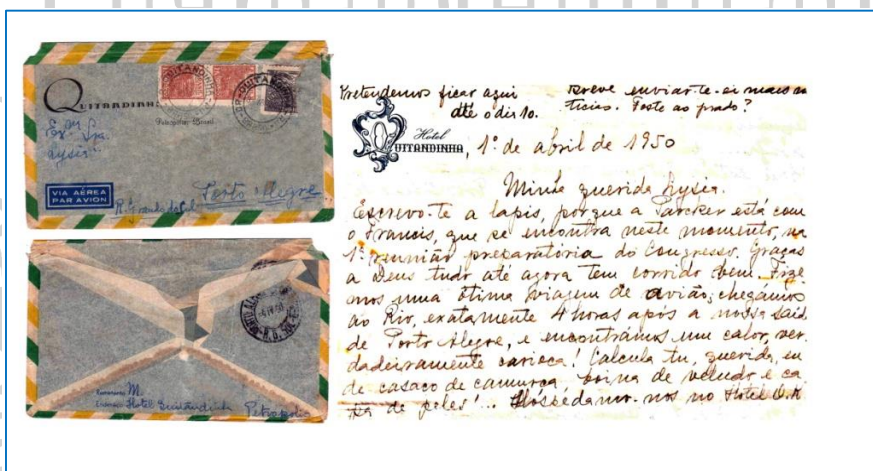 QUITANDINHA
Petropolis (Brasil)
Exma Sra.
Lysia
VIA AÉREA
PAR AVION
Porto Alegre
R. Grande do Sul
M.
Hotel Quitandinha Petropolis
Pretendemos ficar aqui
até o dia 10.
Breve enviar-te-ei mais no
ticias. Foste ao prado?
Hotel
QUITANDINHA, 1º de abril de 1950
Minha querida Lysia.
Escrevo-te a lapis, porque a Parcker está com
o Francis, que se encontra neste momento, na
1ª reunião preparatória do Congresso. Graças
a Deus tudo até agora tem corrido bem. Fize
mos uma ótima viagem de avião; chegámos
ao Rio, exatamente 4 horas após a nossa said
de Porto Alegre, e encontrámos um calor, ver
dadeiramente carioca! Calcula tu, querida, eu
de casaco de camurça boina de veludo e ca
pa de peles!... Hospedámo-nos no Hotel O.K